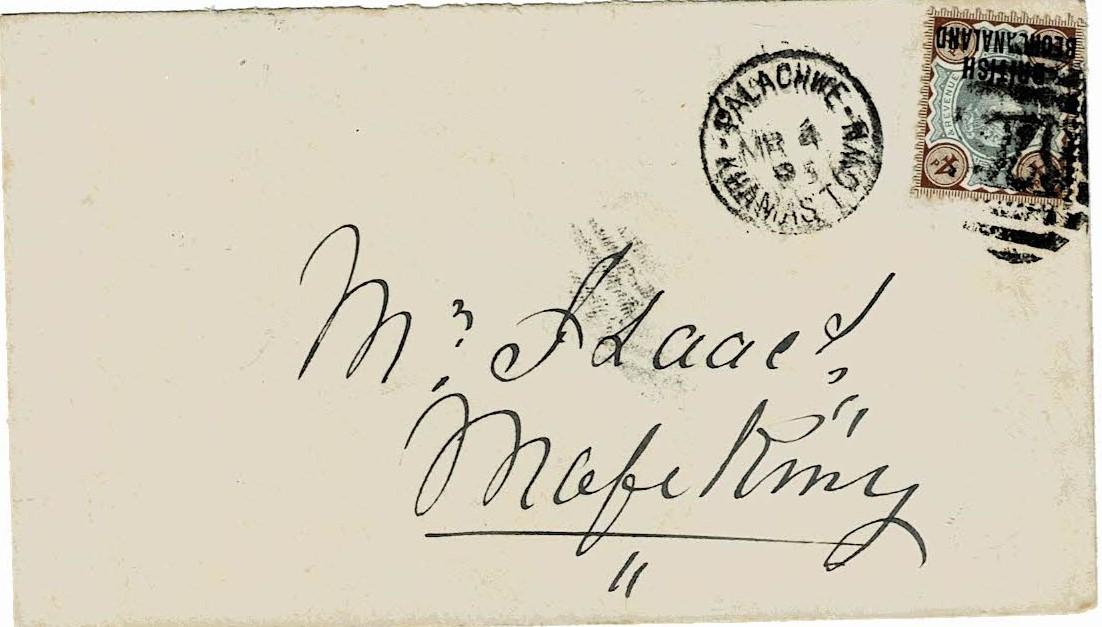 PALACHWE - KHAMA'S TOWN
MR 4
95
BRITISH
BECHUANALAND
REVENUE
4
Mr. Isaacs
Mafeking